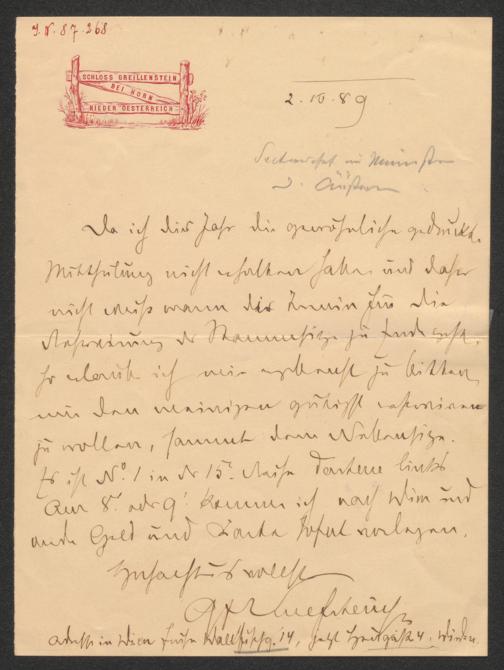 J. N. 87.368
SCHLOSS GREILLENSTEIN
BEI HORN
NIEDER OESTERREICH
2. 10. 89
Da ich dies Jahr die gewöhnliche gedruckte
Mittheilung nicht erhalten habe und daher
nicht weiss wann der Termin für die
Reservirung der Stammsitze zu Ende geht,
so erlaube ich mir ergebenst zu bitten
mir den meinigen gütigst reserviren
zu wollen, sammt dem Nebensitze.
Es ist No. 1 in der 15. Reihe Parterre links
Am 8. oder 9. komme ich nach Wien und
werde Geld und Karte sofort erlegen.
Hochachtungsvollst
Adresse in Wien früher 14, jetzt 4. Wieden.